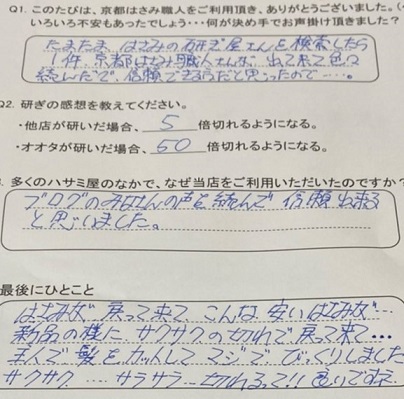 Q1. このたびは、京都はさみ職人をご利用頂き、ありがとうございました。(
いろいろ不安もあったでしょう・・・何が決め手でお声掛け頂きました？
たまたま、はさみの研ぎ屋さんを検索したら
1件、京都はさみ職人さんが、出て来て色々
読んだで、信頼できそうだと思ったので・・・。
Q2. 研ぎの感想を教えてください。
・他店が研いだ場合、 5 倍切れるようになる。
・オオタが研いだ場合、 60 倍切れるようになる。
多くのハサミ屋のなかで、なぜ当店をご利用いただいたのですか？
ブログのみなさんの声を読んで 信頼出来る
と思いました。
最後にひとこと
はさみが、戻って来て こんな 安いはさみが…
新品の様に サクサクの切れで 戻って来て…
主人で 髪をカットして マジで びっくりしました
サクサク…サラサラ…切れるって!! 良いですネ